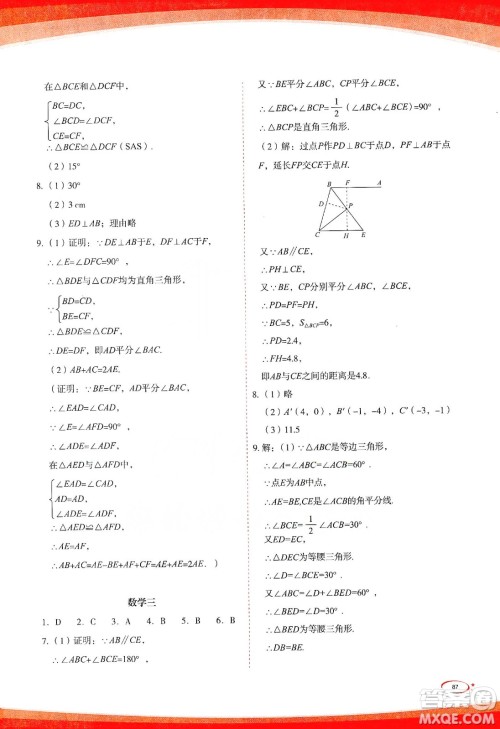 在△BCE和△DCF中,
BC=DC,
∠BCD=∠DCF,
CE=CF,
∴△BCE≌△DCF(SAS).
(2)15°
8.(1)30°
(2)3 cm
(3)ED⊥AB;理由略
9.(1)证明:∵DE⊥AB于E,DF⊥AC于F,
∴∠E=∠DFC=90°,
∴△BDE与△CDF均为直角三角形,
∵ BD=CD,
BE=CF,
∴△BDE≌△CDF,
∴DE=DF,即AD平分∠BAC.
(2)AB+AC=2AE.
(证明:∵BE=CF,AD平分∠BAC,
∴∠EAD=∠CAD,
∴∠E=∠AFD=90°,
在△AED与△AFD中,
∠EAD=∠CAD,
AD=AD,
∠AED=∠AFD,
∴△AED≌△AFD,
∴AE=AF,
∴AB+AC=AE-BE+AF+CF=AE+AE=2AE.)
数学三
1. D 2. C 3. A 4. B 5. B 6. B
7.(1)证明:∵AB∥CE,
∴∠ABC+∠BCE=180°,
又∵BE平分∠ABC,CP平分∠BCE,
∴∠EBC+∠BCP=1/2(∠ABC+∠BCF)=90°,
∴△BCP是直角三角形.
(2)解:过点P作PD⊥BC于点D,PF⊥AB于点
F,延长FP交CE于点H.
B F A
D P
C H E
又∵AB∥CE,
∴PH⊥CE,
又∵BE,CP分别平分∠ABC,∠BCE,
∴PD=PF=PH,
∵BC=5,S△BCP=6,
∴PD=2.4,
∴FH=4.8,
即AB与CE之间的距离是4.8.
8.(1)略
(2)A′(4,0),B′(-1,-4),C′(-3,-1)
(3)11.5
9. 解:(1)∵△ABC是等边三角形,
∴∠A=∠ABC=∠ACB=60°.
∵点E为AB中点,
∴AE=BE,CE是∠ACB的角平分线,
∴∠BCE=1/2∠ACB=30°.
又ED=EC,
∴△DEC为等腰三角形,
∴∠D=∠BCE=30°.
又∠ABC=60°,
∴∠DEB=30°,
∴△DBE为等腰三角形,
∴DB=BE.
67
答案圈
MXQE.COM